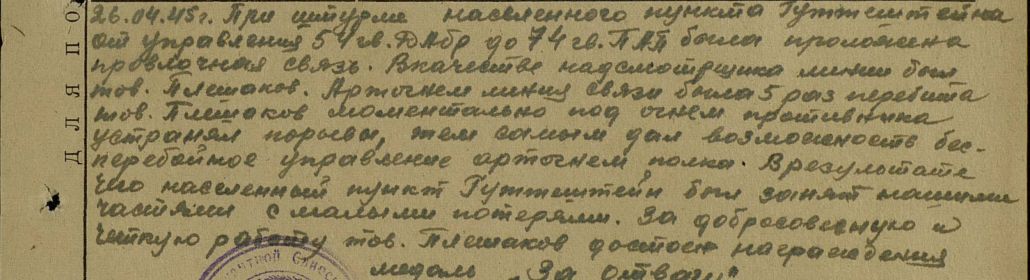 26.04.45г. При штурме населенного пункта Гутжтштейна
от управления 51 гв. ПАбр до 74 гв. ПАП была проложена
проволочная связь. В качестве надсмотрщика линии был
тов. Плетаков. Артогнем линия связи была 5 раз перебита
тов. Плетаков моментально под огнем противника
устранял порывы, тем самым дал возможность бес-
перебойное управление артогнем полка. В результате
чего населенный пункт Гутжтштейн был занят нашими
частями с малыми потерями. За добросовестную и
четкую работу тов. Плетаков достоен награждения
медаль „За отвагу"
ДЛЯ ПО